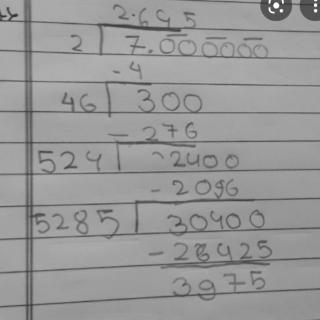 2.645
2 7.000000
-4
46 300
- 276
524 2400
- 2096
5285 30400
- 26425
3975